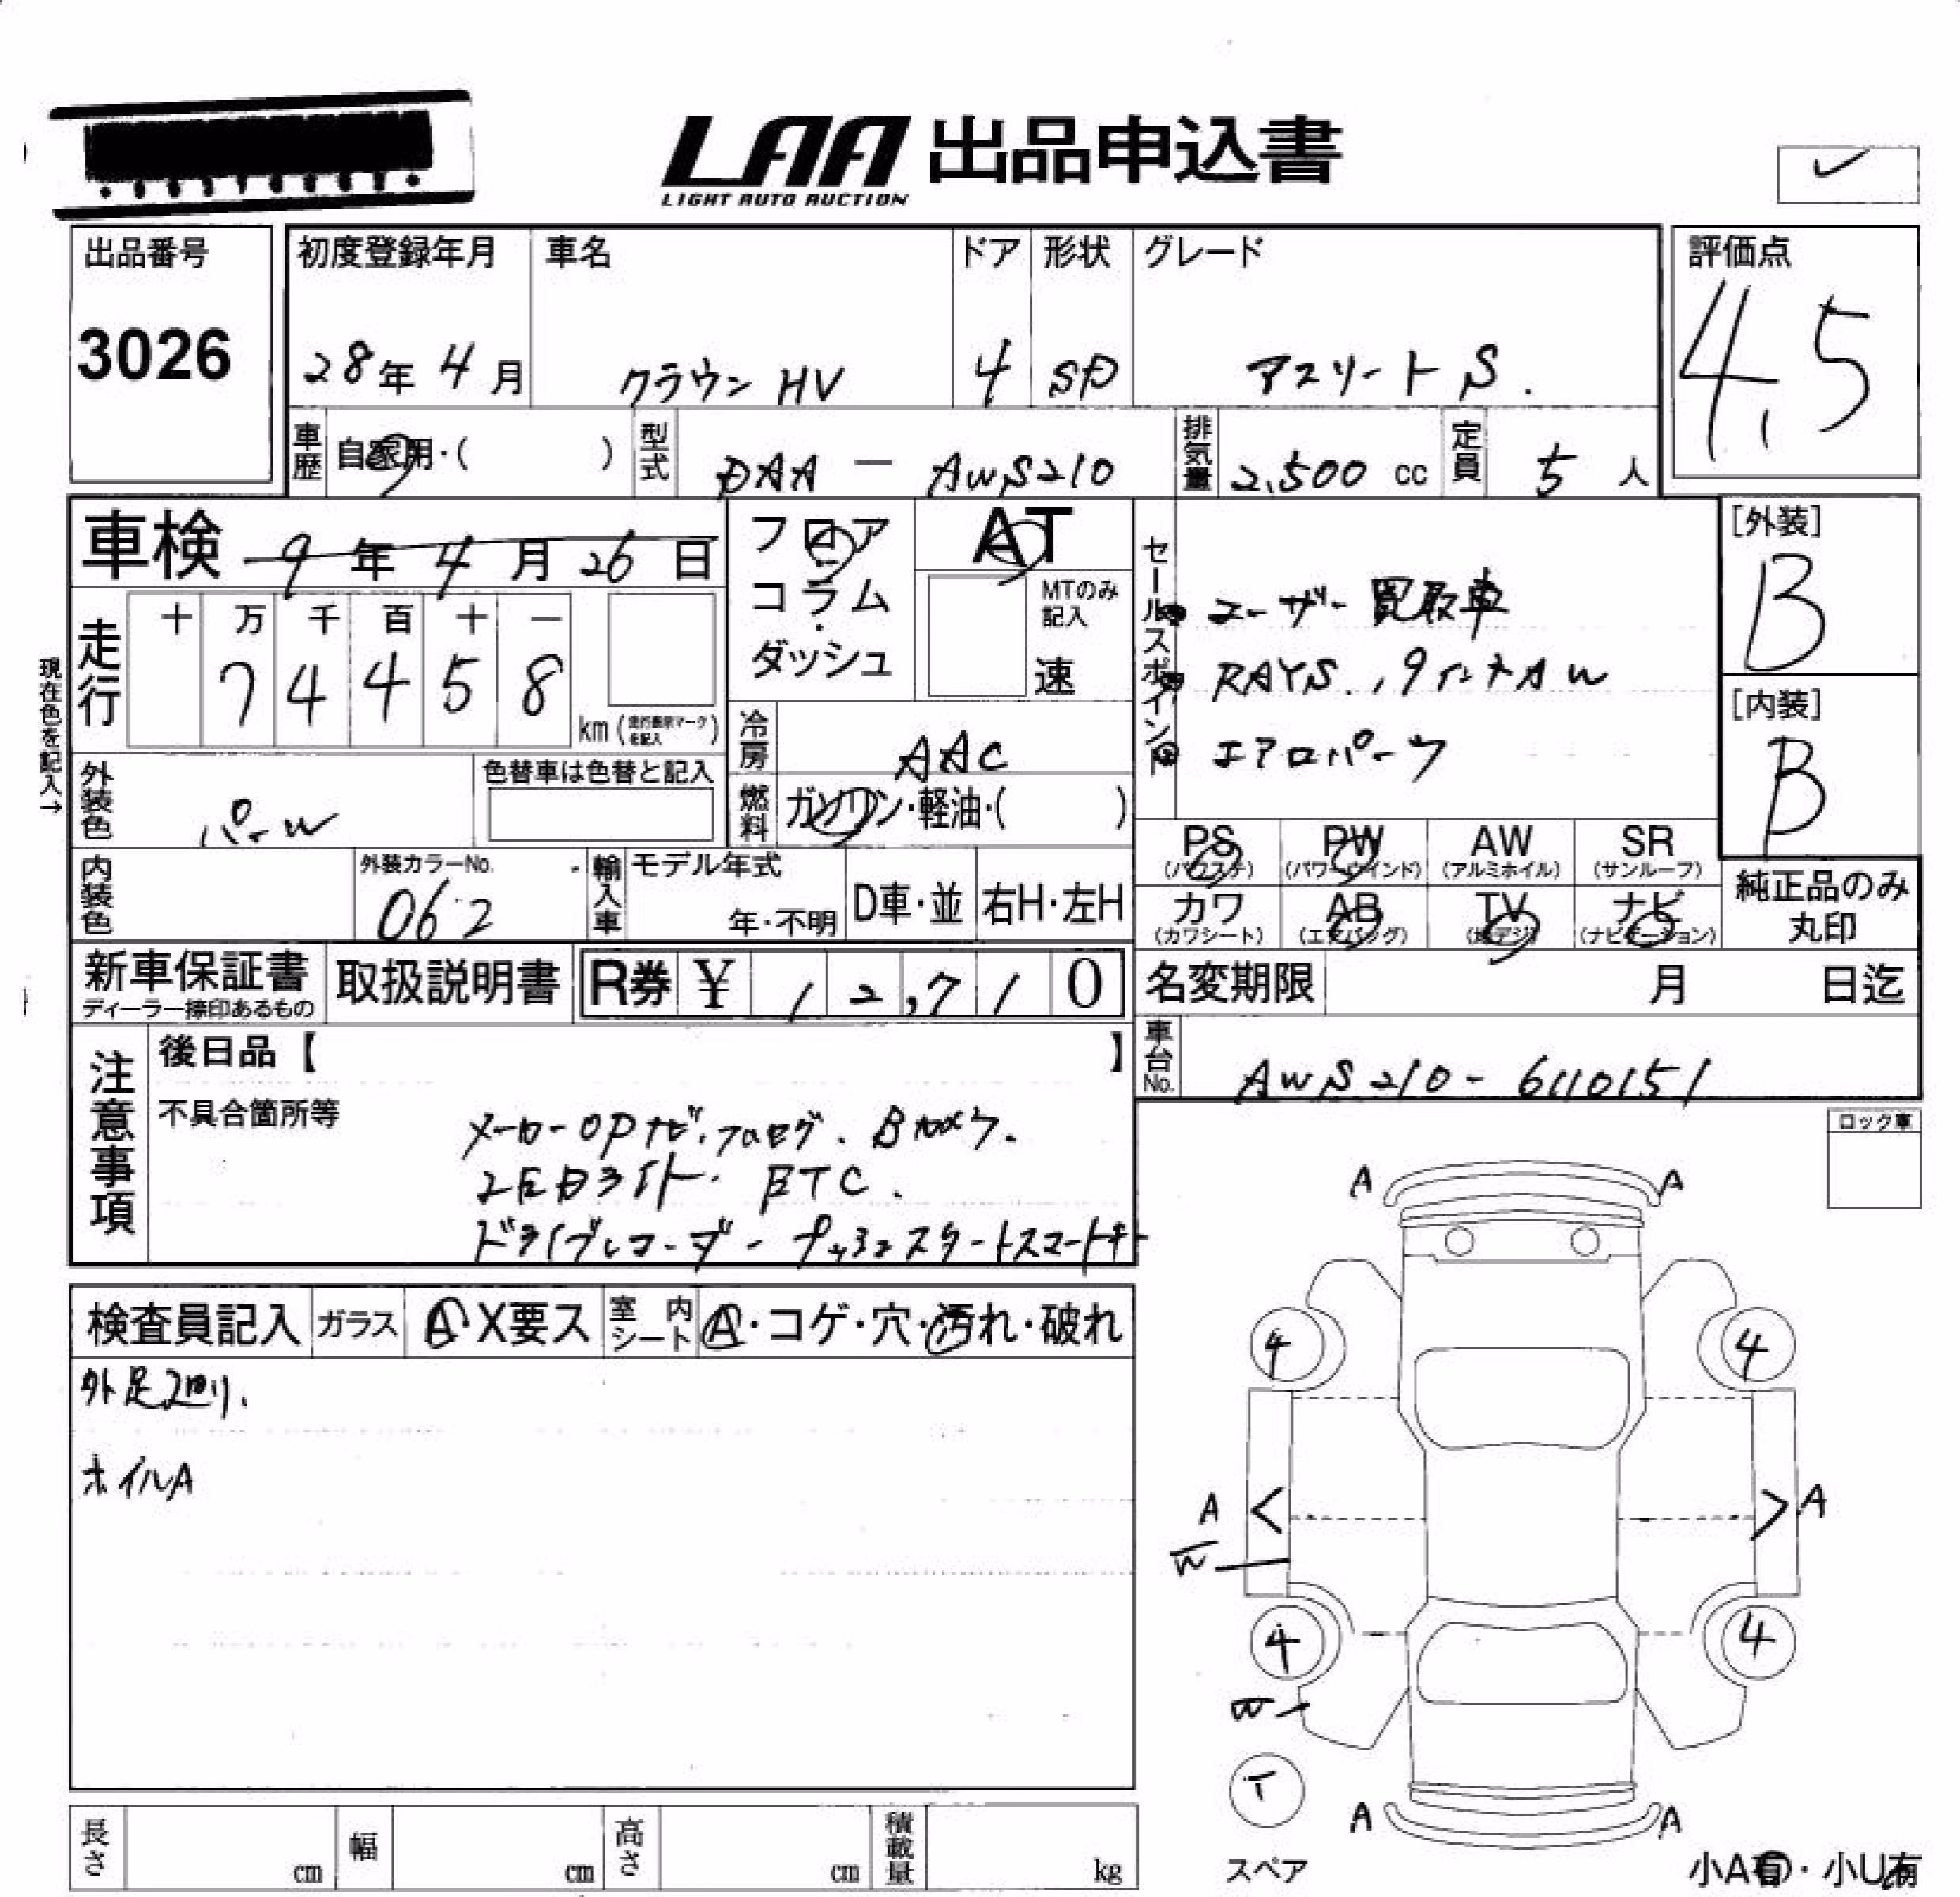 LAA 出品申込書
LIGHT AUTO AUCTION
出品番号
3026
初度登録年月
28年 4月
車名
クラウン HV
ドア
4
形状
SD
グレード
アスリートS.
評価点
4.5
車歴
自家用・( )
型式
DAA - AWS210
排気量
2,500 cc
定員
5 人
車検 9年 4月 26日
フロア
コラム
ダッシュ
AT
MTのみ
記入
速
セールスポイント
ユーザー買取車
RAYS. 19インチAW
エアロパーツ
[外装]
B
[内装]
B
現在色を記入→
走行
十 万 千 百 十 一
7 4 4 5 8
km (走行表示マークを記入)
冷房
AAC
燃料
ガソリン・軽油・( )
外装色
パールW
色替車は色替と記入
PS
(パワステ)
PW
(パワーウインド)
AW
(アルミホイル)
SR
(サンルーフ)
カワ
(カワシート)
AB
(エアバッグ)
TV
(地デジ)
ナビ
(ナビゲーション)
純正品のみ
丸印
内装色
外装カラーNo.
062
輸入車
モデル年式
年・不明
D車・並
右H・左H
新車保証書
ディーラー捺印あるもの
取扱説明書
R券 ¥ 12,710
名変期限 月 日迄
車台No.
AWS210-6110151
注意事項
後日品【 】
不具合箇所等
メーカーOPナビ.フルセグ.Bカメラ.
LEDライト. ETC.
ドライブレコーダー プッシュスタートスマートキー
ロック車
検査員記入
ガラス
A・X要ス
室内シート
A・コゲ・穴・汚れ・破れ
外足廻り.
ホイルA
A A
4 4
A A
W
4 4
W
T
スペア
A A
長さ cm
幅 cm
高さ cm
積載量 kg
小A有・小U有